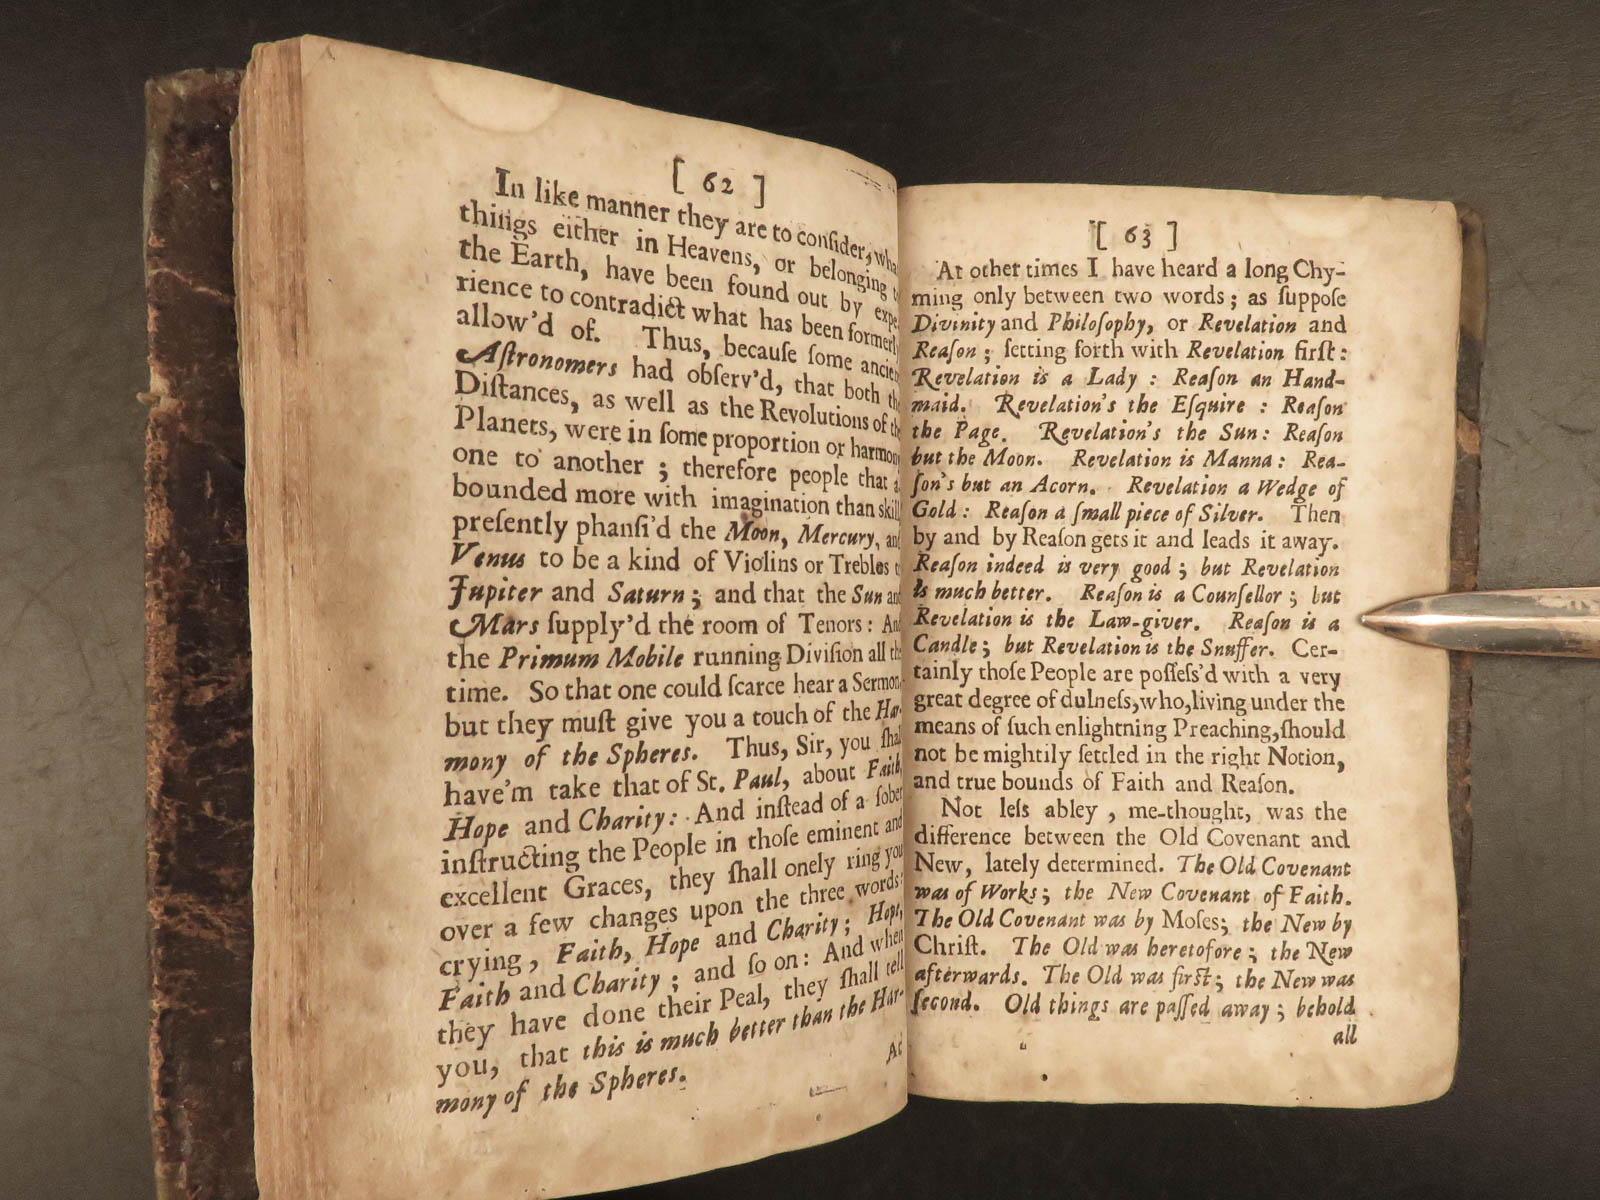 [ 62 ]
In like manner they are to conſider, wha
things either in Heavens, or belonging t
the Earth, have been found out by expe-
rience to contradict what has been formerly
allow'd of. Thus, becauſe ſome ancien
Aſtronomers had obſerv'd, that both th
Diſtances, as well as the Revolutions of th
Planets, were in ſome proportion or harmon
one to another ; therefore people that a
bounded more with imagination than skill
preſently phanſi'd the Moon, Mercury, and
Venus to be a kind of Violins or Trebles t
Jupiter and Saturn ; and that the Sun and
Mars ſupply'd the room of Tenors : And
the Primum Mobile running Diviſion all th
time. So that one could ſcarce hear a Sermon
but they muſt give you a touch of the Har-
mony of the Spheres. Thus, Sir, you ſhal
have'm take that of St. Paul, about Faith,
Hope and Charity : And inſtead of a ſober
inſtructing the People in thoſe eminent and
excellent Graces, they ſhall onely ring you
over a few changes upon the three words :
crying, Faith, Hope and Charity ; Hope,
Faith and Charity ; and ſo on : And when
they have done their Peal, they ſhall tell
you, that this is much better than the Har-
mony of the Spheres.
At
[ 63 ]
At other times I have heard a long Chy-
ming only between two words ; as ſuppoſe
Divinity and Philoſophy, or Revelation and
Reaſon ; ſetting forth with Revelation firſt :
Revelation is a Lady : Reaſon an Hand-
maid. Revelation's the Eſquire : Reaſon
the Page. Revelation's the Sun : Reaſon
but the Moon. Revelation is Manna : Rea-
ſon's but an Acorn. Revelation a Wedge of
Gold : Reaſon a ſmall piece of Silver. Then
by and by Reaſon gets it and leads it away.
Reaſon indeed is very good ; but Revelation
is much better. Reaſon is a Counſellor ; but
Revelation is the Law-giver. Reaſon is a
Candle ; but Revelation is the Snuffer. Cer-
tainly thoſe People are poſſeſs'd with a very
great degree of dulneſs, who, living under the
means of ſuch enlightning Preaching, ſhould
not be mightily ſettled in the right Notion,
and true bounds of Faith and Reaſon.
Not leſs abley , me-thought, was the
difference between the Old Covenant and
New, lately determined. The Old Covenant
was of Works ; the New Covenant of Faith.
The Old Covenant was by Moſes ; the New by
Chriſt. The Old was heretofore ; the New
afterwards. The Old was firſt ; the New was
ſecond. Old things are paſſed away ; behold
all